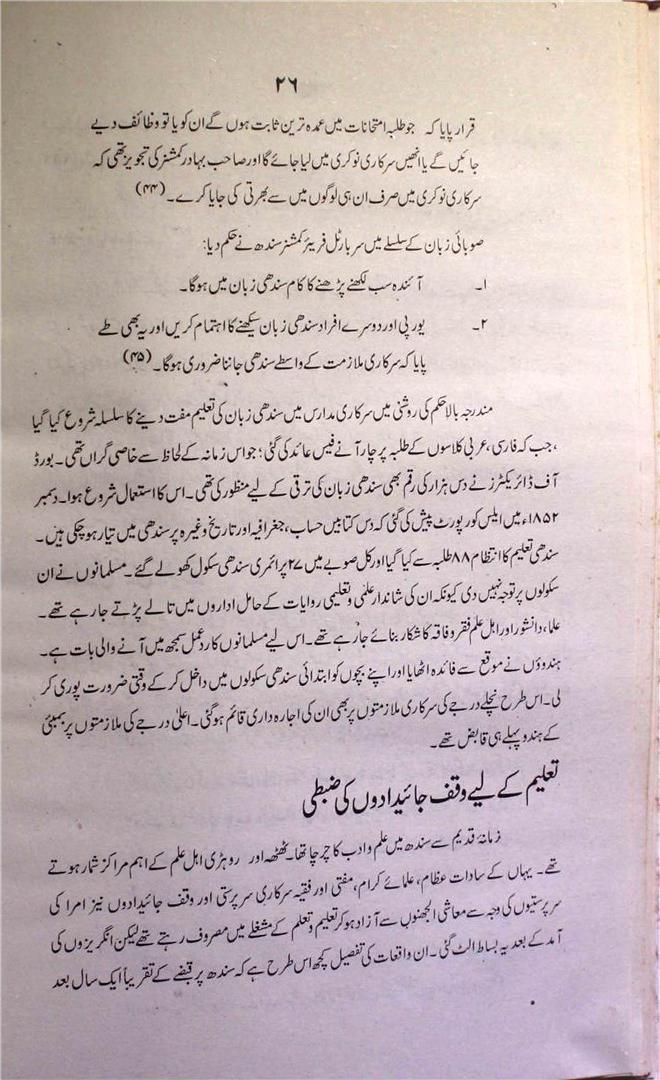 ۲۶
قرار پایا کہ جو طلبہ امتحانات میں عمدہ ترین ثابت ہوں گے ان کو یا تو وظائف دیے
جائیں گے یا انھیں سرکاری نوکری میں لیا جائے گا اور صاحب بہادر کمشنر کی تجویز تھی کہ
سرکاری نوکری میں صرف ان ہی لوگوں میں سے بھرتی کی جایا کرے۔ (۴۴)
صوبائی زبان کے سلسلے میں سر بارٹل فریئر کمشنر سندھ نے حکم دیا:
۱۔ آئندہ سب لکھنے پڑھنے کا کام سندھی زبان میں ہوگا۔
۲۔ یورپی اور دوسرے افراد سندھی زبان سیکھنے کا اہتمام کریں اور یہ بھی طے
پایا کہ سرکاری ملازمت کے واسطے سندھی جاننا ضروری ہوگا۔ (۴۵)
مندرجہ بالا حکم کی روشنی میں سرکاری مدارس میں سندھی زبان کی تعلیم مفت دینے کا سلسلہ شروع کیا گیا
، جب کہ فارسی، عربی کلاسوں کے طلبہ پر چار آنے فیس عائد کی گئی؛ جو اس زمانہ کے لحاظ سے خاصی گراں تھی۔ بورڈ
آف ڈائریکٹرز نے دس ہزار کی رقم بھی سندھی زبان کی ترقی کے لیے منظور کی تھی۔ اس کا استعمال شروع ہوا۔ دسمبر
۱۸۵۲ء میں ایلس کو رپورٹ پیش کی گئی کہ دس کتابیں حساب، جغرافیہ اور تاریخ وغیرہ پر سندھی میں تیار ہو چکی ہیں۔
سندھی تعلیم کا انتظام ۸۸ طلبہ سے کیا گیا اور کل صوبے میں ۲۷ پرائمری سندھی سکول کھولے گئے۔ مسلمانوں نے ان
سکولوں پر توجہ نہیں دی کیونکہ ان کی شاندار علمی و تعلیمی روایات کے حامل اداروں میں تالے پڑتے جا رہے تھے۔
علماء، دانشور اور اہل علم فقر و فاقہ کا شکار بنائے جا رہے تھے۔ اس لیے مسلمانوں کا ردعمل سمجھ میں آنے والی بات ہے۔
ہندوؤں نے موقع سے فائدہ اٹھایا اور اپنے بچوں کو ابتدائی سندھی سکولوں میں داخل کر کے وقتی ضرورت پوری کر
لی۔ اس طرح نچلے درجے کی سرکاری ملازمتوں پر بھی ان کی اجارہ داری قائم ہو گئی۔ اعلیٰ درجے کی ملازمتوں پر بمبئی
کے ہندو پہلے ہی قابض تھے۔
تعلیم کے لیے وقف جائیدادوں کی ضبطی
زمانۂ قدیم سے سندھ میں علم و ادب کا چرچا تھا۔ ٹھٹھہ اور روہڑی اہل علم کے اہم مراکز شمار ہوتے
تھے۔ یہاں کے سادات عظام، علمائے کرام، مفتی اور فقیہ سرکاری سرپرستی اور وقف جائیدادوں نیز امرا کی
سرپرستیوں کی وجہ سے معاشی الجھنوں سے آزاد ہو کر تعلیم و تعلم کے مشغلے میں مصروف رہتے تھے لیکن انگریزوں کی
آمد کے بعد یہ بساط الٹ گئی۔ ان واقعات کی تفصیل کچھ اس طرح ہے کہ سندھ پر قبضے کے تقریباً ایک سال بعد